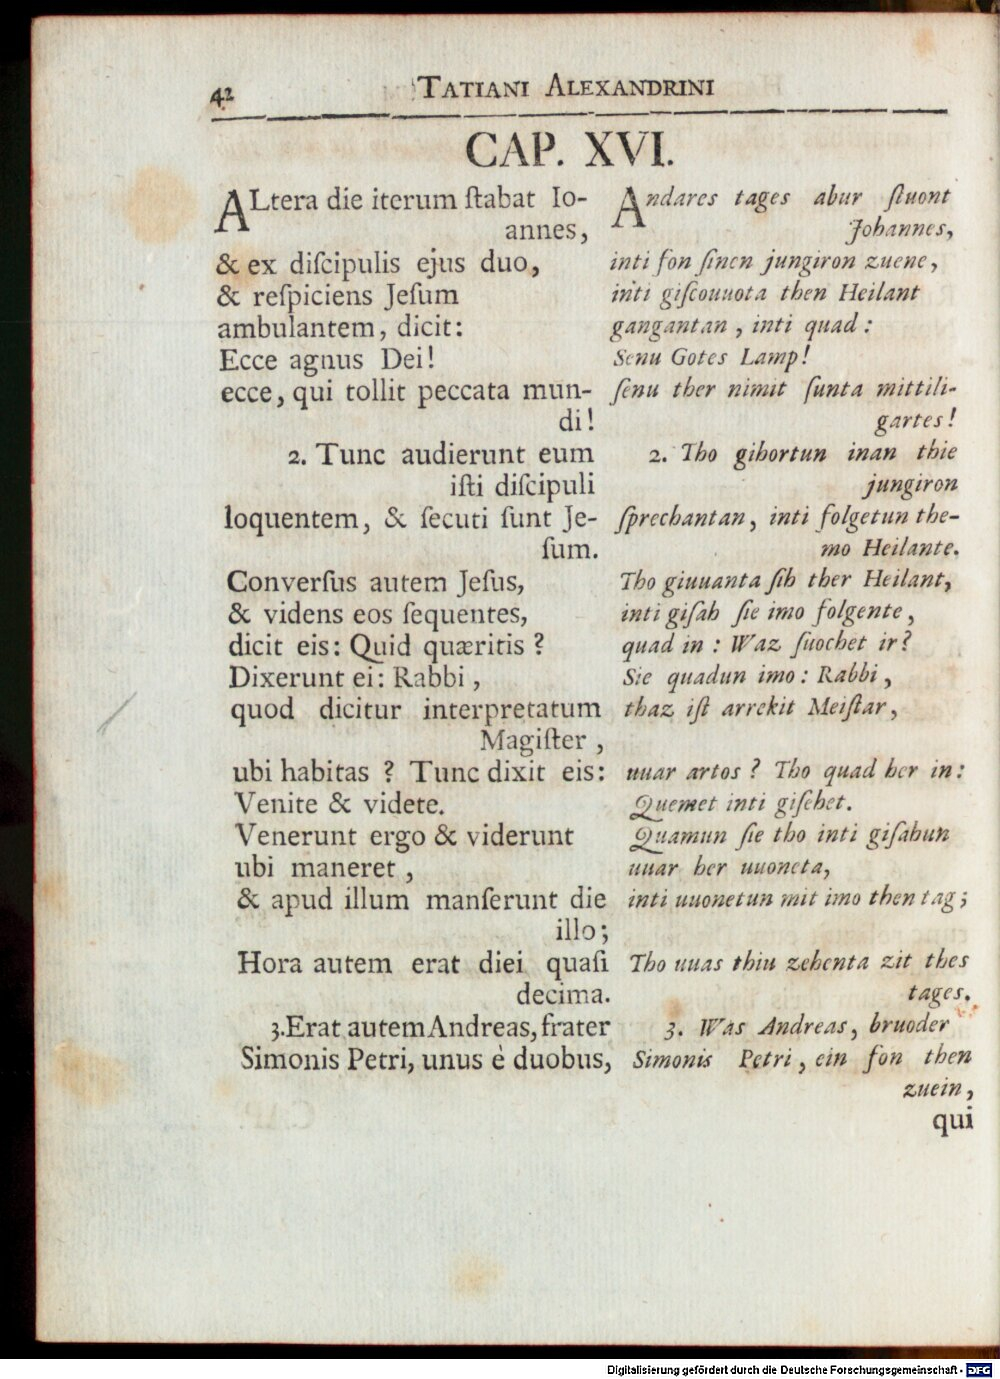 42 TATIANI ALEXANDRINI
CAP. XVI.
ALtera die iterum ſtabat Io-
annes,
& ex diſcipulis ejus duo,
& reſpiciens Jeſum
ambulantem, dicit:
Ecce agnus Dei!
ecce, qui tollit peccata mun-
di!
2. Tunc audierunt eum
iſti diſcipuli
loquentem, & ſecuti ſunt Je-
ſum.
Converſus autem Jeſus,
& videns eos ſequentes,
dicit eis: Quid quæritis?
Dixerunt ei: Rabbi,
quod dicitur interpretatum
Magiſter,
ubi habitas? Tunc dixit eis:
Venite & videte.
Venerunt ergo & viderunt
ubi maneret,
& apud illum manſerunt die
illo;
Hora autem erat diei quaſi
decima.
3. Erat autem Andreas, frater
Simonis Petri, unus è duobus,
Andares tages abur ſtuont
Johannes,
inti fon ſinen jungiron zuene,
inti giſcouuota then Heilant
gangantan, inti quad:
Senu Gotes Lamp!
ſenu ther nimit ſunta mittili-
gartes!
2. Tho gihortun inan thie
jungiron
ſprechantan, inti folgetun the-
mo Heilante.
Tho giuuanta ſih ther Heilant,
inti giſah ſie imo folgente,
quad in: Waz ſuochet ir?
Sie quadun imo: Rabbi,
thaz iſt arrekit Meiſtar,
uuar artos? Tho quad her in:
Quemet inti giſehet.
Quamun ſie tho inti giſahun
uuar her uuoneta,
inti uuonetun mit imo then tag;
Tho uuas thiu zehenta zit thes
tages.
3. Was Andreas, bruoder
Simonis Petri, ein fon then
zuein,
qui
Digitalisierung gefördert durch die Deutsche Forschungsgemeinschaft - DFG